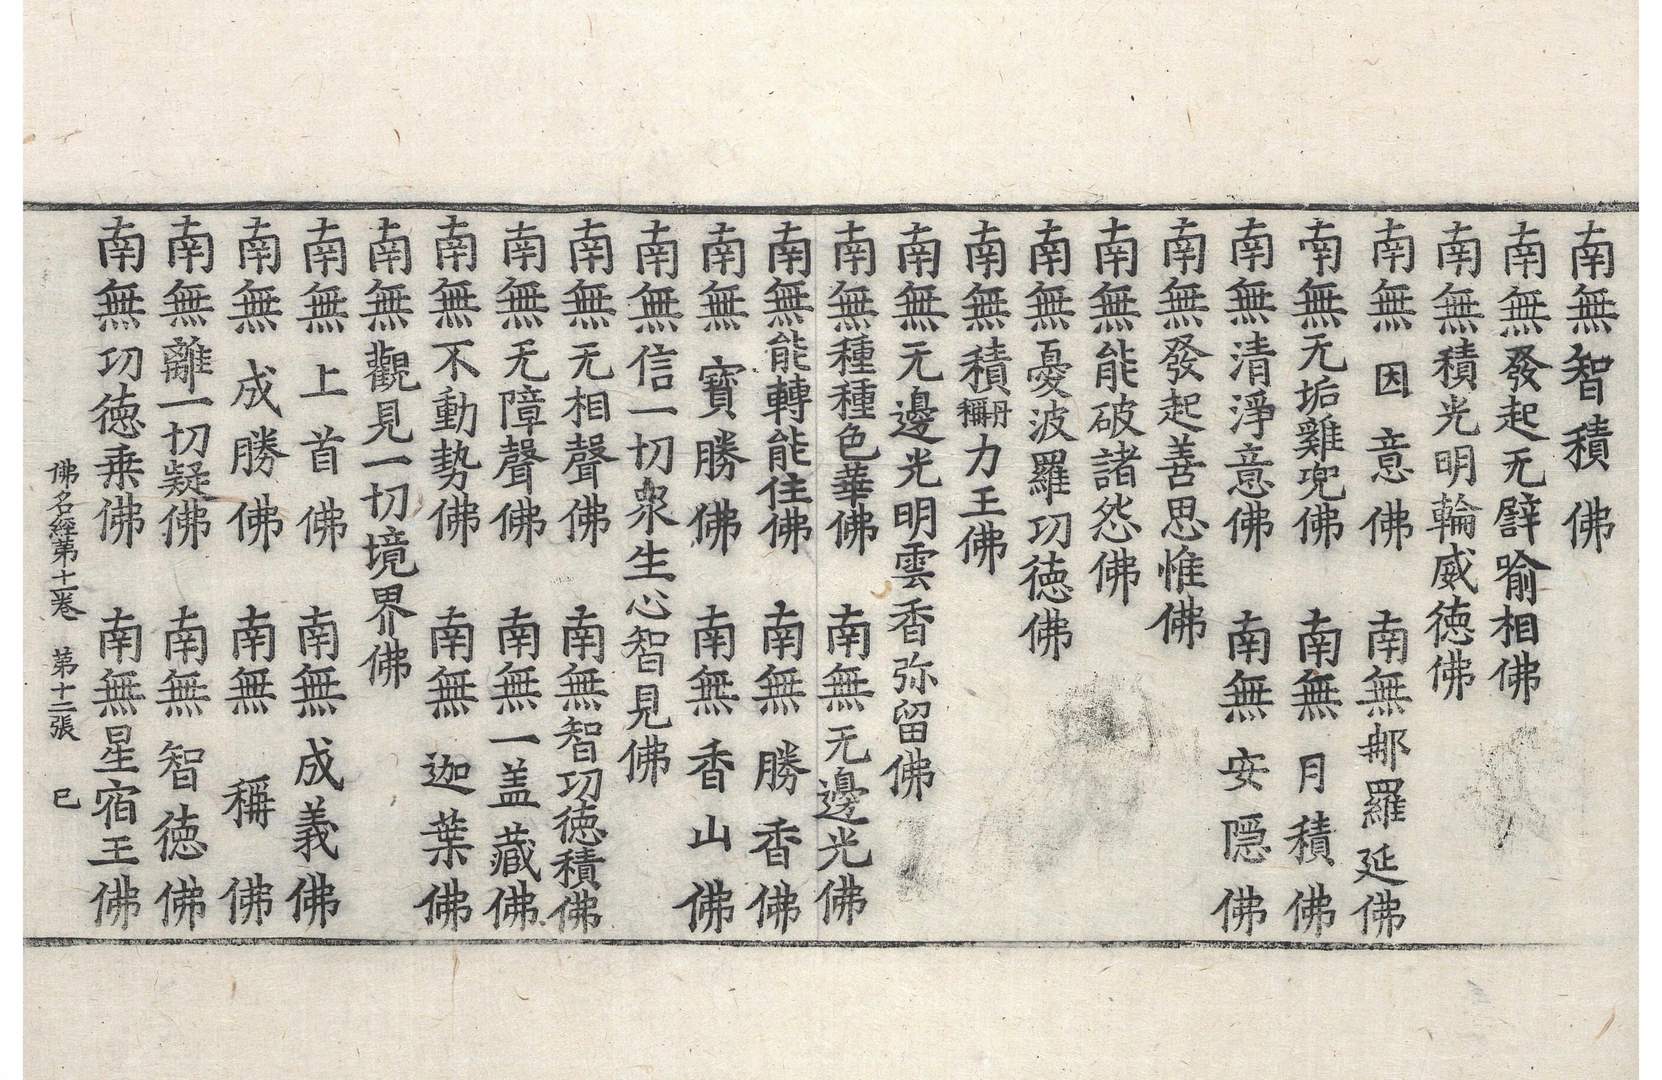 南無智積佛
南無發起无譬喻相佛
南無積光明輪威德佛
南無因意佛　南無那羅延佛
南無无垢離兜佛　南無月積佛
南無清淨意佛　南無安隱佛
南無發起善思惟佛
南無能破諸怨佛
南無憂波羅功德佛
南無積丹稱力王佛
南無无邊光明雲香弥留佛
南無種種色華佛　南無无邊光佛
南無能轉能住佛　南無勝香佛
南無寶勝佛　南無香山佛
南無信一切衆生心智見佛
南無无相聲佛　南無智功德積佛
南無无障聲佛　南無一盖藏佛
南無不動勢佛　南無迦葉佛
南無觀見一切境界佛
南無上首佛　南無成義佛
南無成勝佛　南無稱佛
南無離一切疑佛　南無智德佛
南無功德乘佛　南無星宿王佛
佛名經第十二卷　第十二張　巳